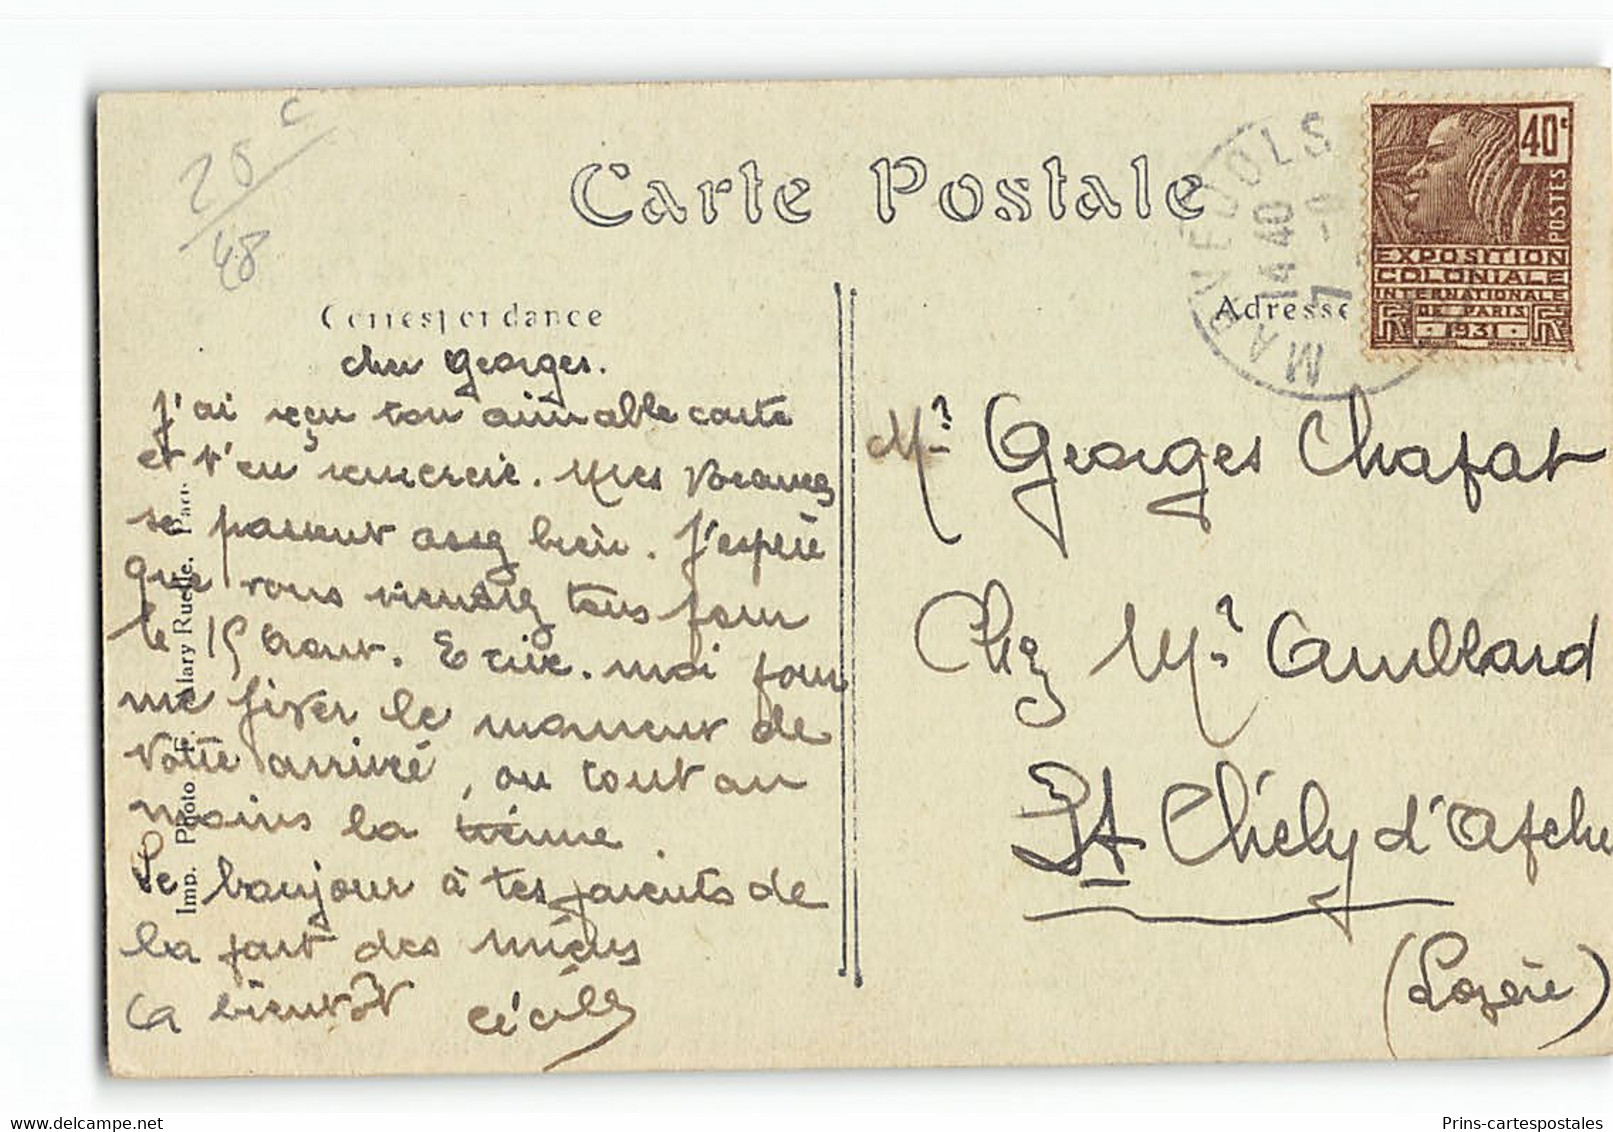 20 c
48
Carte Postale
Correspondance
cher Georges.
J'ai reçu ton aimable carte
et t'en remercie. Mes vacances
se passent assez bien. J'espère
que vous viendrez tous pour
le 15 Août. Ecrire-moi pour
me fixer le moment de
votre arrivée, ou tout au
moins la tienne
Le bonjour à tes parents de
la part des miens
A bientôt Cécile
Imp. Photo E. Malary Ruelle. Paris
MARVEJOLS
14 40
7 -8
40c
POSTES
EXPOSITION
COLONIALE
INTERNATIONALE
DE PARIS
1931
Adresse
Mr Georges Chafat
Chez Mr
St Chély d'Apcher
(Lozère)
delcampe.net
Prins-cartespostales